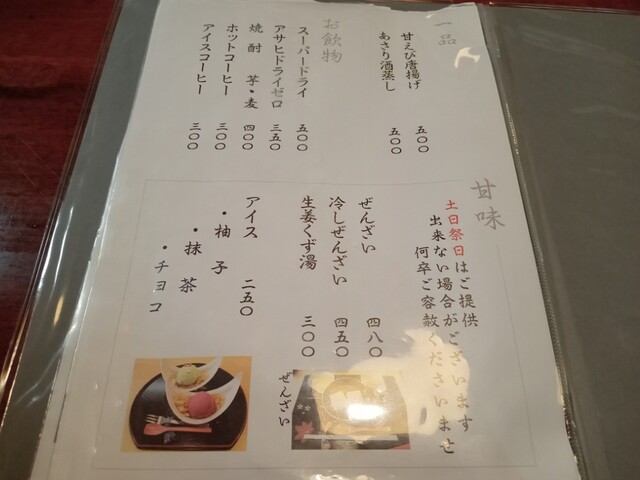 一品
甘えび唐揚げ 五〇〇
あさり酒蒸し 五〇〇
お飲物
スーパードライ 五〇〇
アサヒドライゼロ 三五〇
焼酎 芋・麦 四〇〇
ホットコーヒー 三〇〇
アイスコーヒー 三〇〇
甘味
土日祭日はご提供
出来ない場合がございます
何卒ご容赦くださいませ
ぜんざい 四八〇
冷しぜんざい 四五〇
生姜くず湯 三〇〇
アイス 二五〇
・柚子
・抹茶
・チョコ
ぜんざい